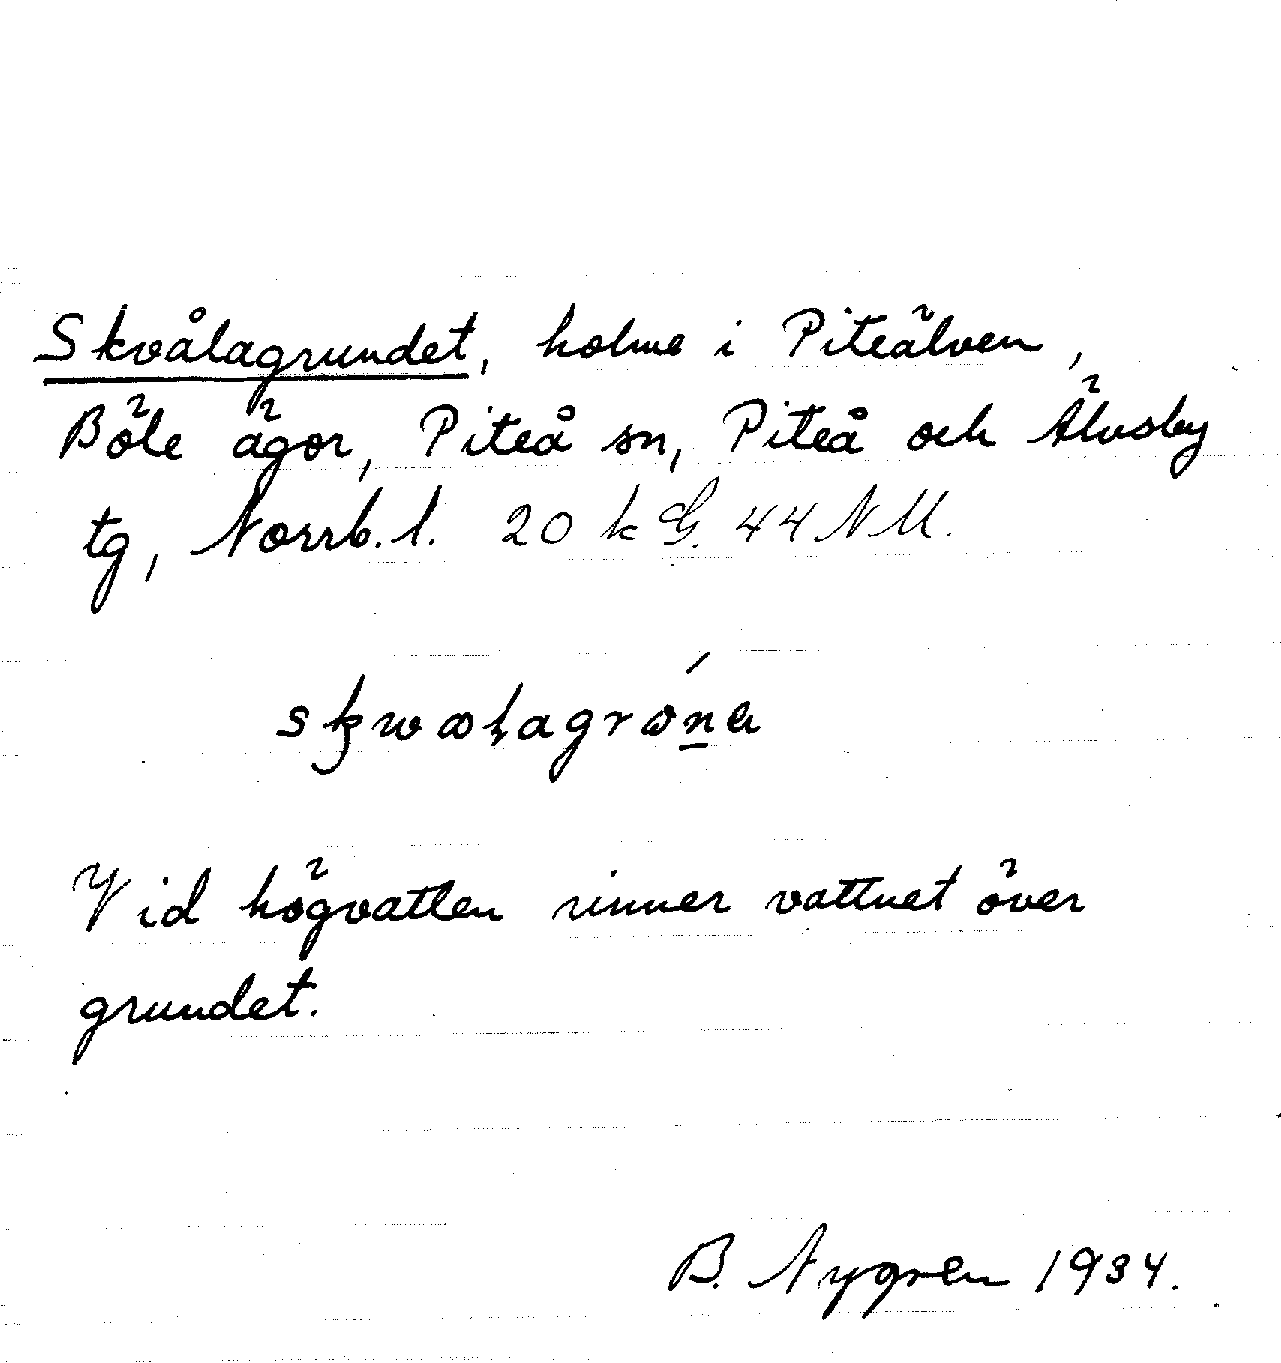 Skvålagrundet, holme i Piteälven,
Böle ägor, Piteå sn, Piteå och Älvsby
tg, Norrb. l. 20 k G. 44 NM.
Vid högvatten rinner vattnet över
grundet.
B. Nygren 1934.